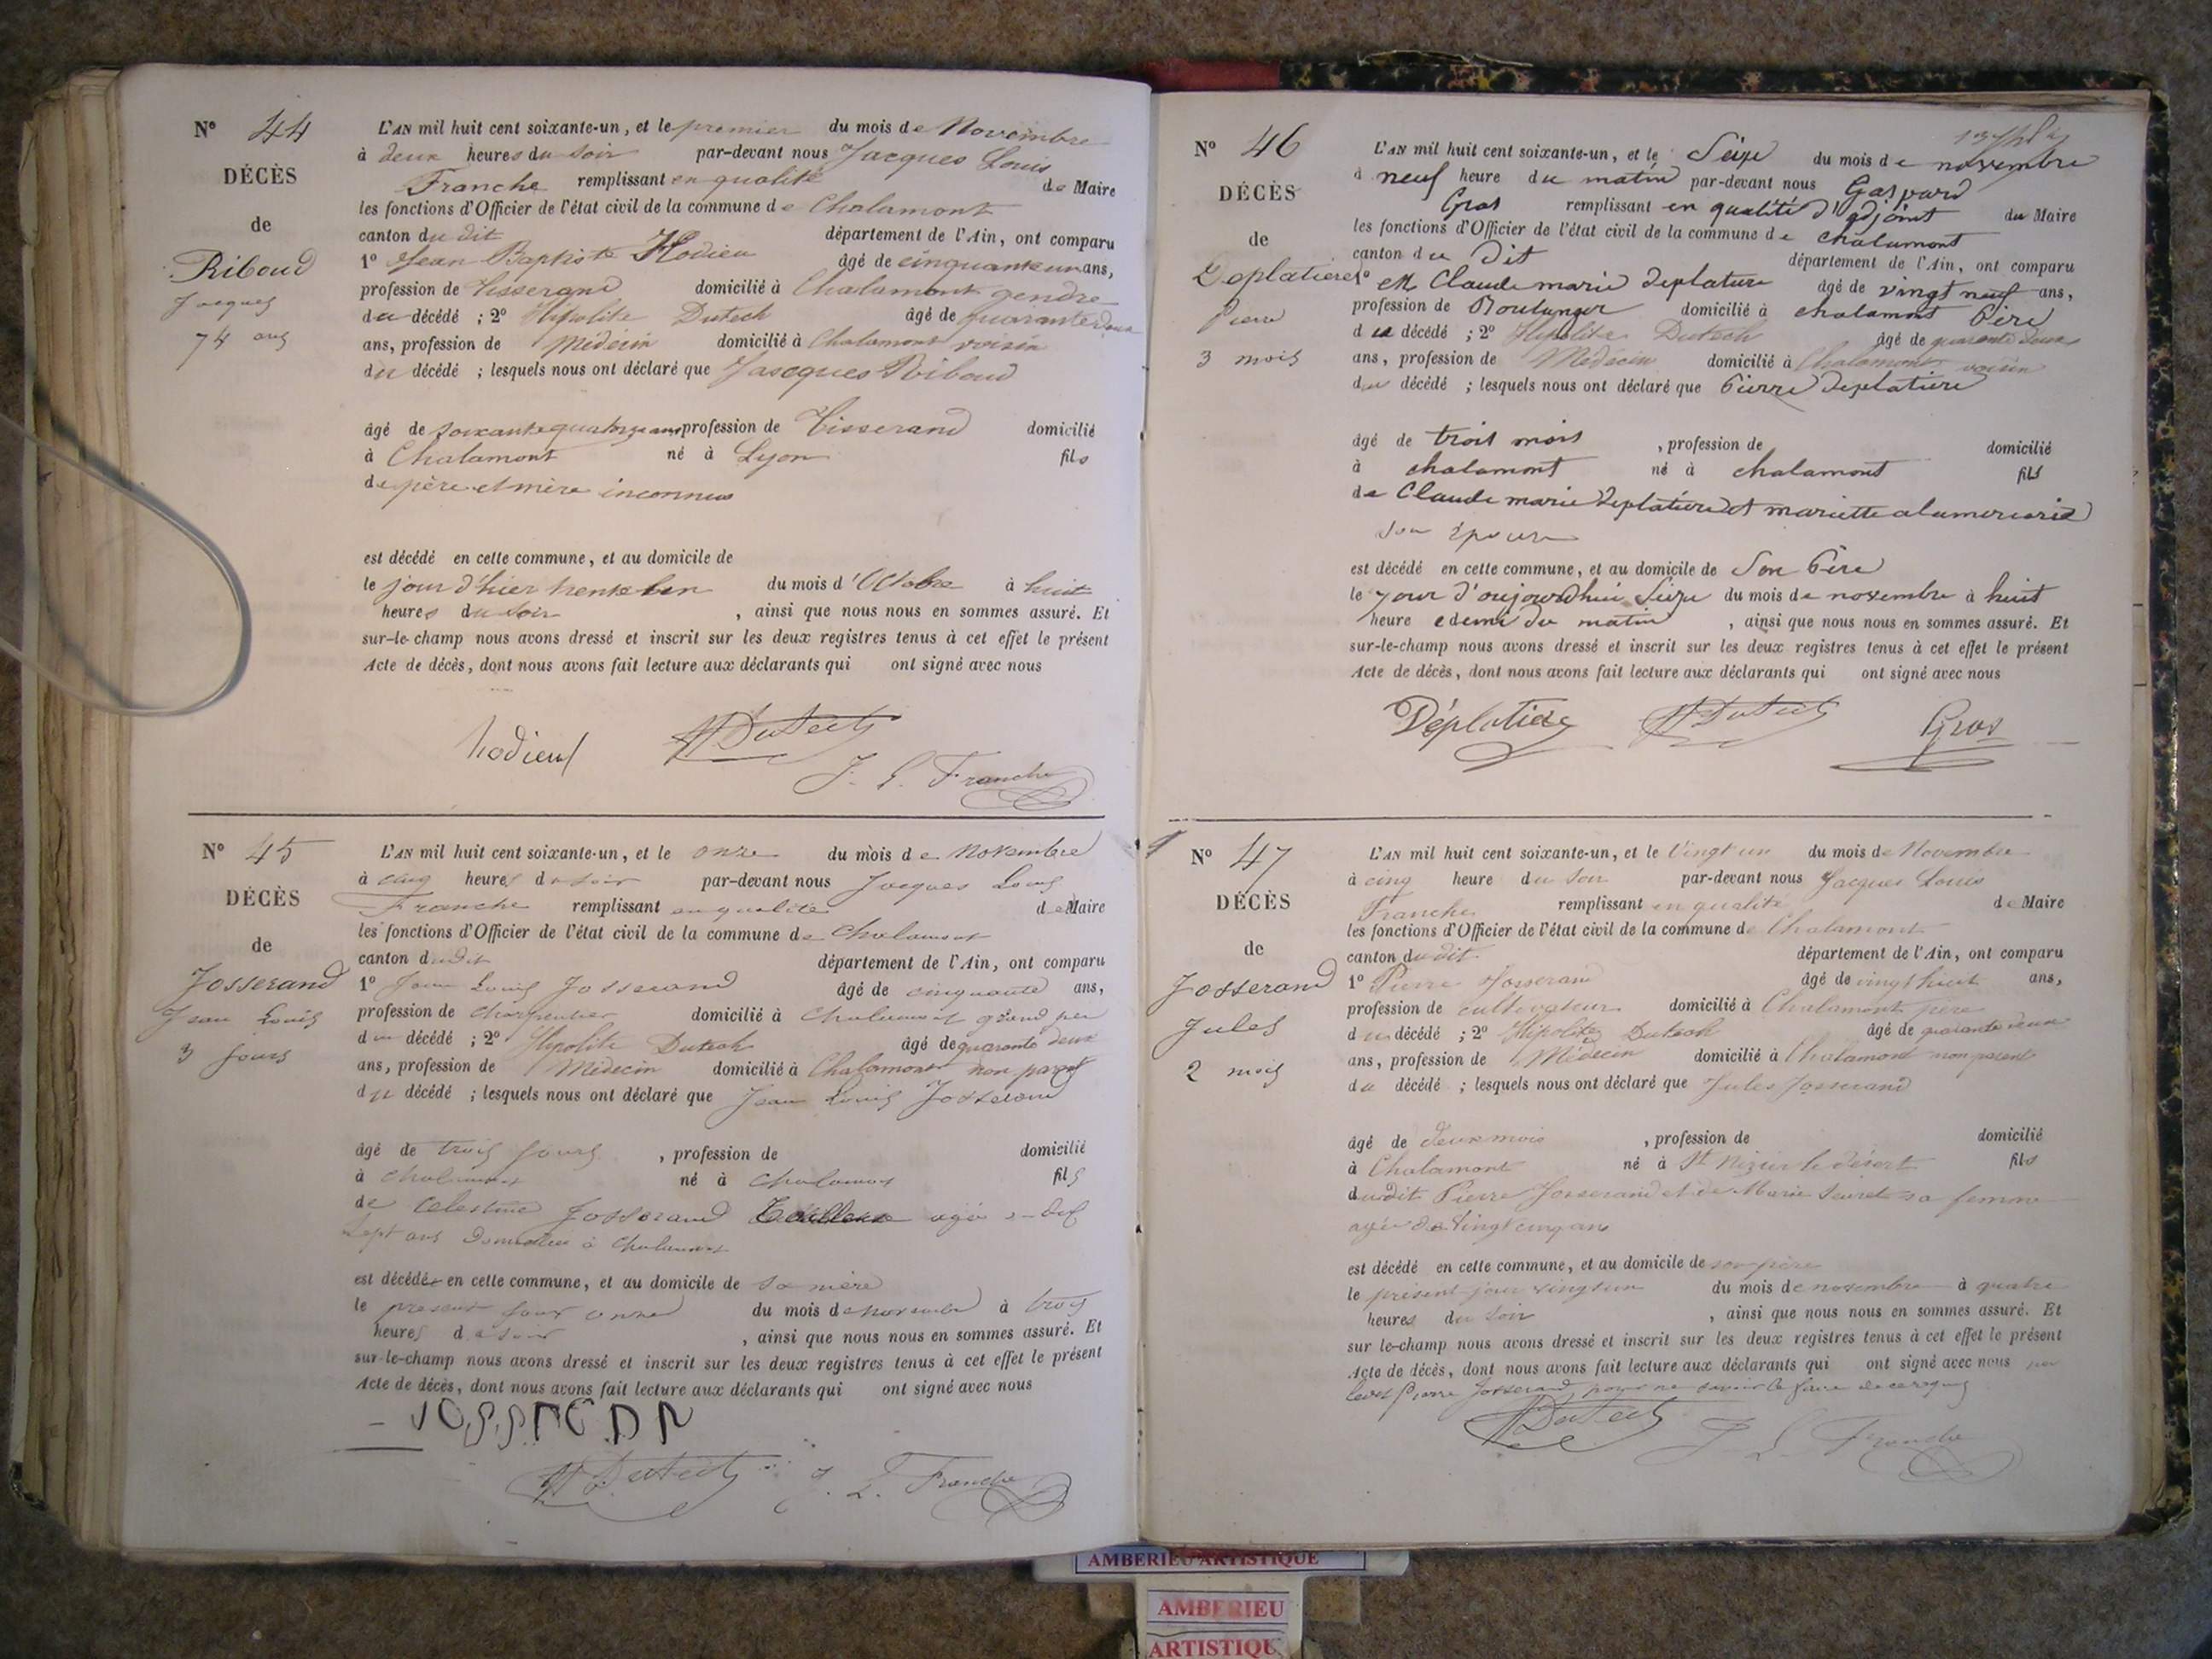 N° 44
DÉCÈS
de
Riboud
Jacques
74 ans
L'AN mil huit cent soixante-un, et le premier du mois de Novembre
à deux heures du soir par-devant nous Jacques Louis
Franche remplissant en qualité de Maire
les fonctions d'Officier de l'état civil de la commune de Chalamont
canton du dit département de l'Ain, ont comparu
1° Jean Baptiste Hodieu âgé de cinquante un ans,
profession de tisserand domicilié à Chalamont gendre
du décédé ; 2° Hipolite Dutech âgé de quarante deux
ans, profession de Médecin domicilié à Chalamont voisin
du décédé ; lesquels nous ont déclaré que Jascques Riboud
âgé de soixante quatorze ans profession de Tisserand domicilié
à Chalamont né à Lyon fils
de père et mère inconnus
est décédé en cette commune, et au domicile de
le jour d'hier trente un du mois d'Octobre à huit
heures du soir , ainsi que nous nous en sommes assuré. Et
sur-le-champ nous avons dressé et inscrit sur les deux registres tenus à cet effet le présent
Acte de décès, dont nous avons fait lecture aux déclarants qui ont signé avec nous
hodieu HDutech
J. L. Franche
N° 45
DÉCÈS
de
Josserand
Jean Louis
3 jours
L'AN mil huit cent soixante-un, et le onze du mois de Novembre
à cinq heures du soir par-devant nous Jacques Louis
Franche remplissant en qualité de Maire
les fonctions d'Officier de l'état civil de la commune de Chalamont
canton dudit département de l'Ain, ont comparu
1° Jean Louis Josserand âgé de cinquante ans,
profession de charpentier domicilié à Chalamont grand per
du décédé ; 2° Hipolite Dutech âgé de quarante deux
ans, profession de Médecin domicilié à Chalamont non parent
du décédé ; lesquels nous ont déclaré que Jean Louis Josserand
âgé de trois jours , profession de domicilié
à chalamont né à chalamont fils
de Celestine Josserand agée
sept ans Domiciliée à Chalamont
est décédé en cette commune, et au domicile de sa mère
le present jour onze du mois de novembre à trois
heures du soir , ainsi que nous nous en sommes assuré. Et
sur-le-champ nous avons dressé et inscrit sur les deux registres tenus à cet effet le présent
Acte de décès, dont nous avons fait lecture aux déclarants qui ont signé avec nous
HDutech J. L. Franche
N° 46
DÉCÈS
de
Deplatiere
Pierre
3 mois
L'AN mil huit cent soixante-un, et le Seize du mois de novembre
à neuf heure du matin par-devant nous Gaspard
Gros remplissant en qualité d'adjoint du Maire
les fonctions d'Officier de l'état civil de la commune de chalamont
canton du Dit département de l'Ain, ont comparu
1° Claude marie Deplature âgé de vingt neuf ans,
profession de Boulanger domicilié à chalamont Père
du décédé ; 2° Hipolite Dutech âgé de quarante deux
ans, profession de Médecin domicilié à Chalamont voisin
du décédé ; lesquels nous ont déclaré que Pierre Deplatiere
âgé de trois mois , profession de domicilié
à chalamont né à chalamont fils
de Claude marie Deplatiere et mariette
son épouse
est décédé en cette commune, et au domicile de Son Père
le jour d'oujourdhui Seize du mois de novembre à huit
heure edemi du matin , ainsi que nous nous en sommes assuré. Et
sur-le-champ nous avons dressé et inscrit sur les deux registres tenus à cet effet le présent
Acte de décès, dont nous avons fait lecture aux déclarants qui ont signé avec nous
Déplatiere HDutech Gros
N° 47
DÉCÈS
de
Josserand
Jules
2 mois
L'AN mil huit cent soixante-un, et le Vingt un du mois de Novembre
à cinq heure du soir par-devant nous Jacques Louis
Franche remplissant en qualité de Maire
les fonctions d'Officier de l'état civil de la commune de Chalamont
canton du dit département de l'Ain, ont comparu
1° Pierre Josserand âgé de vingt huit ans,
profession de cultivateur domicilié à Chalamont père
du décédé ; 2° Hipolite Dutech âgé de quarante deux
ans, profession de Médecin domicilié à Chalamont non parent
du décédé ; lesquels nous ont déclaré que Jules Josserand
âgé de deux mois , profession de domicilié
à Chalamont né à St Nizier le désert fils
dudit Pierre Josserand et de Marie sa femme
agée de vingt cinq ans
est décédé en cette commune, et au domicile de son père
le présent jour vingt un du mois de novembre à quatre
heures du soir , ainsi que nous nous en sommes assuré. Et
sur le-champ nous avons dressé et inscrit sur les deux registres tenus à cet effet le présent
Acte de décès, dont nous avons fait lecture aux déclarants qui ont signé avec nous
Pierre Josserand pour ne savoir le faire de ce requis
HDutech J. L. Franche
AMBERIEU ARTISTIQUE
AMBERIEU
ARTISTIQU